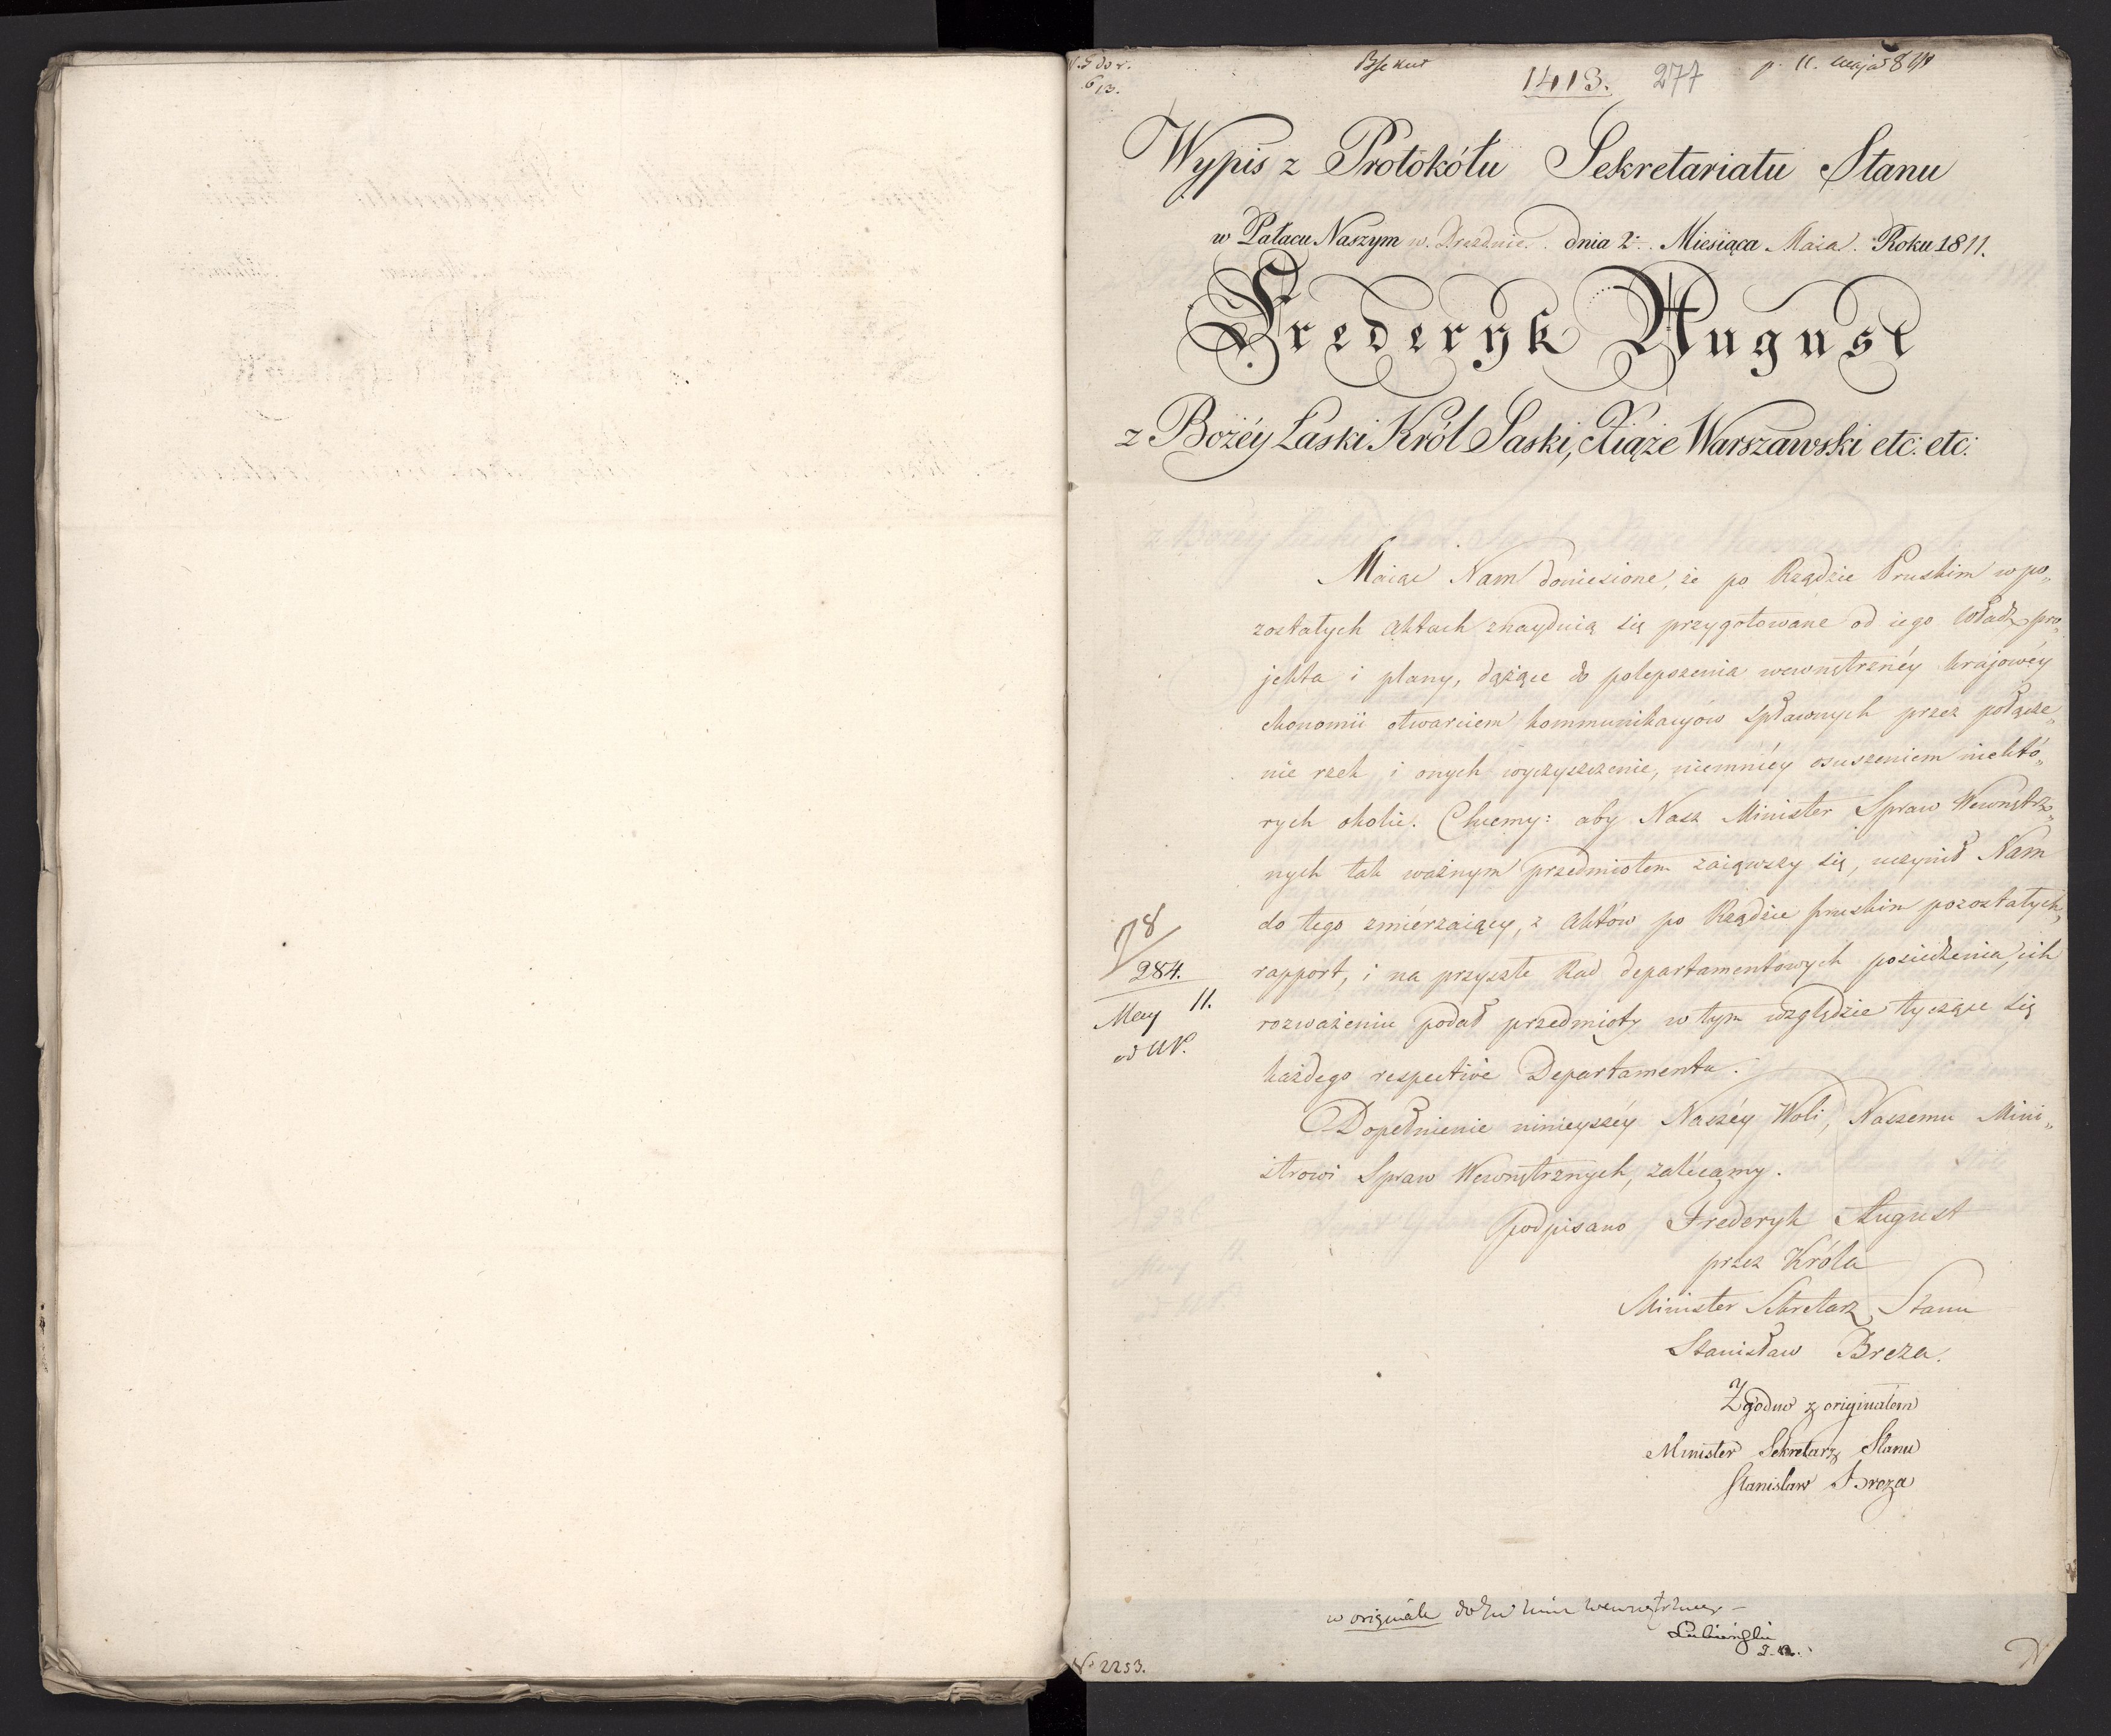 1413. 277
Wypis z Protokółu Sekretariatu Stanu
w Pałacu Naszym w Dreźnie dnia 2. Miesiąca Maia Roku 1811.
Frederyk August
z Bożéy Łaski Król Saski, Xiąże Warszawski etc: etc:
Maiąc Nam doniesione, że po Rządzie Pruskim w po„
zostałych Aktach znayduią się przygotowane od iego Władz pro„
jekta i plany, dążące do polepszenia wewnętrznéy krajowéy
ekonomii otwarciem kommunikacyów spławnych przez połącze„
nie rzek i onych wyczyszczenie, niemniéy osuszeniem niektó„
rych okolic. Chcemy: aby Nasz Minister Spraw Wewnętrz„
nych tak ważnym przedmiotem zaiąwszy się, uczynił Nam
do tego zmiérzaiący, z Aktów po Rządzie pruskim pozostałych,
rapport, i na przyszłe Rad departamentowych posiedzenia, ich
rozważeniu podał przedmioty w tym względzie tyczące się
każdego respective Departamentu.
Dopełnienie ninieyszéy Naszéy Woli, Naszemu Mini„
strowi Spraw Wewnętrznych, zalécamy.
podpisano Frederyk August
przez Króla
Minister Sekretarz Stanu
Stanisław Breza.
Zgodno z originałem
Minister Sekretarz Stanu
Stanisław Breza
78
284.
May 11.
w originale
Łubieński
No 2253.